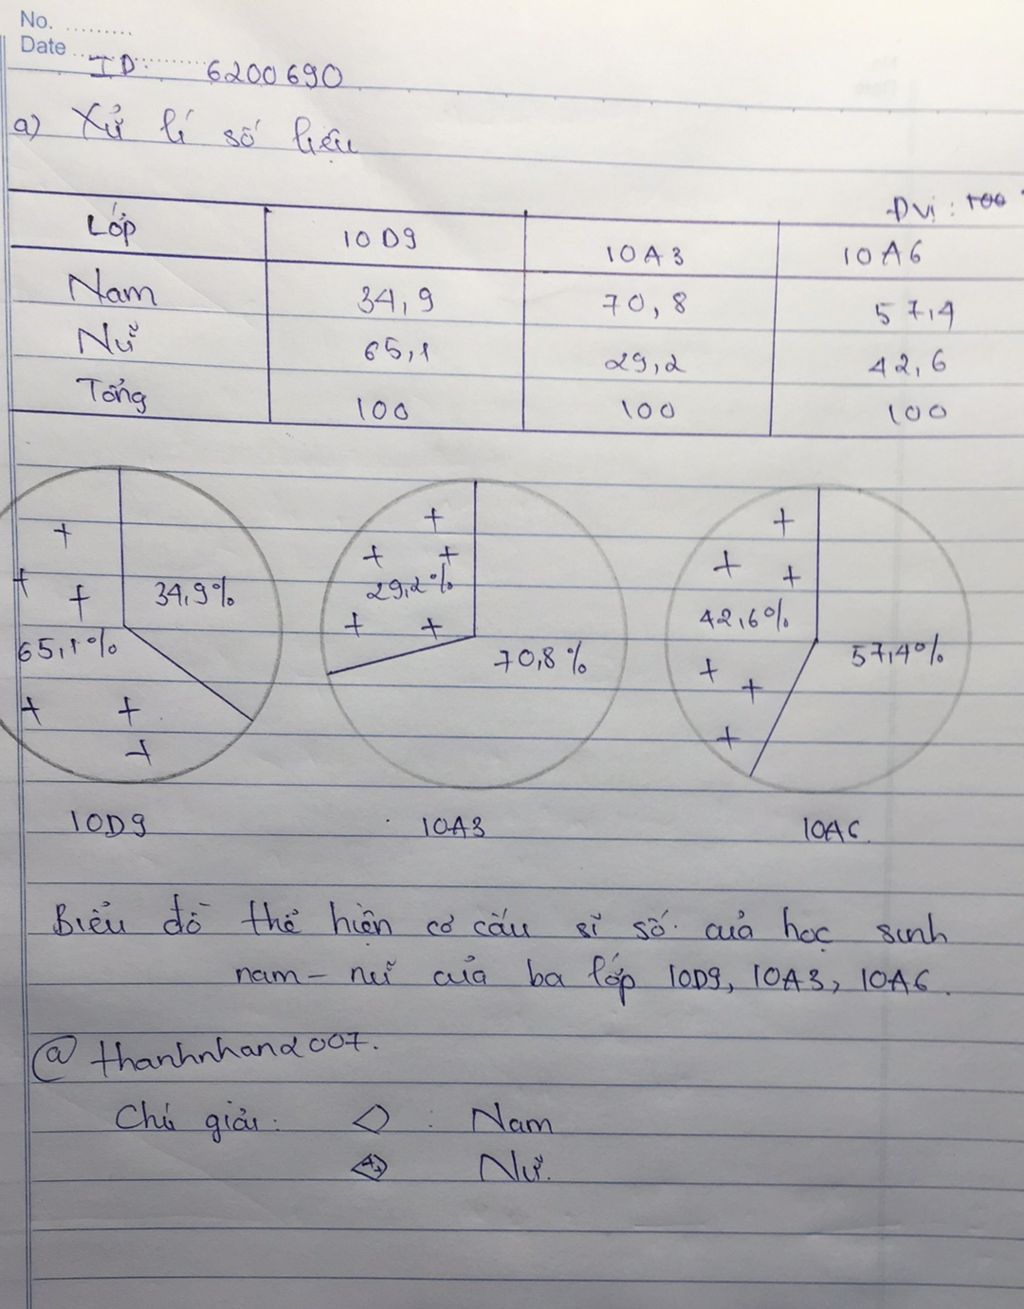 No. .........
Date .........
ID: 6200690
a) Xử lí số liệu
Đvị:
Lớp 10D9 10A3 10A6
Nam 34,9 70,8 57,4
Nữ 65,1 29,2 42,6
Tổng 100 100 100
34,9% 65,1%
29,2% 70,8%
42,6% 57,4%
10D9 10A3 10A6
Biểu đồ thể hiện cơ cấu sĩ số của học sinh
nam - nữ của ba lớp 10D9, 10A3, 10A6.
@thanhnhan2007.
Chú giải: : Nam
Nữ.